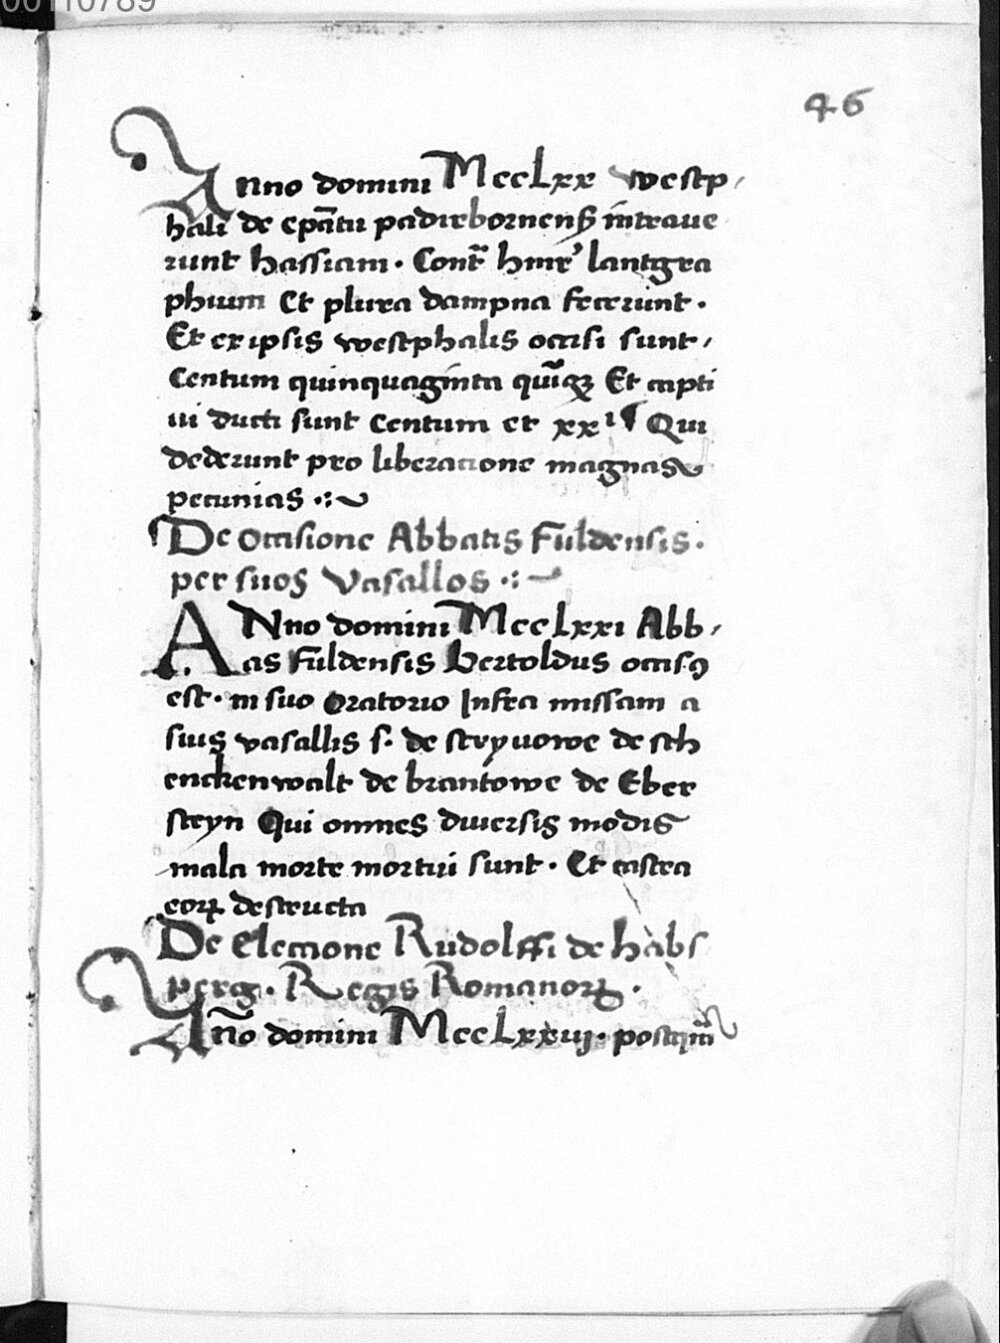 00110789
46
Anno domini MccLxx westp,
hali de ep̄atu padirbornenẞ intraue
runt hassiam. Contᷓ hinr̓ lantgra
phium Et plura dampna fecerunt.
Et ex ipsis westphalis occisi sunt,
Centum quinquaginta quı̄qꝫ Et capti
ui ducti sunt Centum et xx Qui
dederunt pro liberacione magnas
pecunias
De occisione Abbatis Fuldensis.
per suos Vasallos
ANno domini MccLxxi Abb,
as Fuldensis Bertoldus occisꝯ
est. in suo Oratorio Infra missam a
suis vasallis s. de steynowe de sch
enckenwalt de brantowe de Eber
steyn Qui omnes diuersis modis
mala morte mortui sunt. Et castra
eoꝝ destructa
De Eleccione Rudolffi de habs
perg. Regis Romanoꝝ.
An̄o domini MccLxxiij. postqm̄